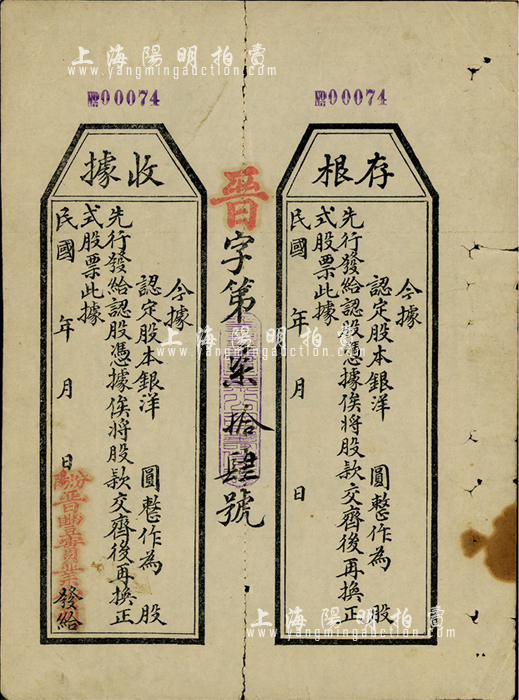 上海陽明拍賣
www.yangmingauction.com
№00074
№00074
存根
今據
認定股本銀洋 圓整作為 股
先行發給認股憑據俟將股款交齊後再換正
式股票此據
民國 年 月 日
晉字第柒拾肆號
收據
今據
認定股本銀洋 圓整作為 股
先行發給認股憑據俟將股款交齊後再換正
式股票此據
民國 年 月 日
汾陽晉豐賣業 發給
上海陽明拍賣
www.yangmingauction.com
上海陽明拍賣
www.yangmingauction.com